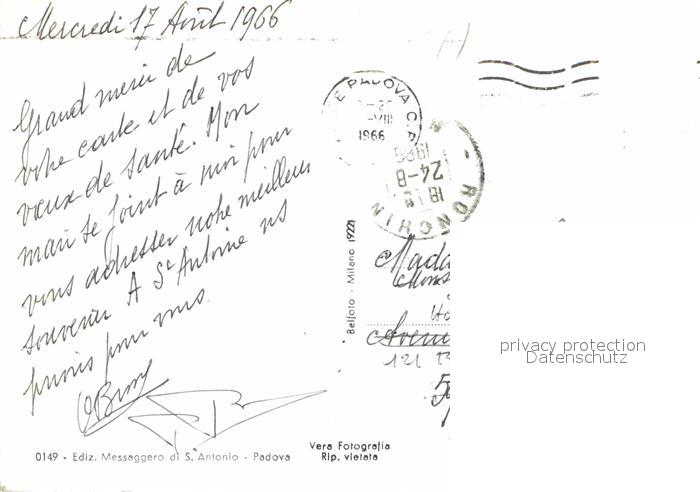 Mercredi 17 Août 1966
Grand merci de
votre carte et de vos
vœux de santé. Mon
mari se joint à moi pour
vous adresser notre meilleur
souvenir A St Antoine ns
prions pour vous.
E PADOVA C.P.
VIII
1966
RONCHIN
18 H
24-8
1966
Belfoto - Milano 19221
Mada
Mons
Avenu
121
privacy protection
Datenschutz
0149 - Ediz. Messaggero di S. Antonio - Padova
Vera Fotografia
Rip. vietata